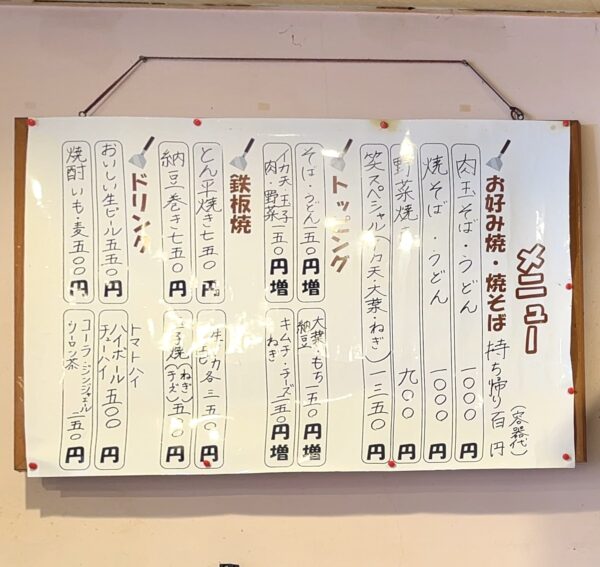 メニュー
お好み焼・焼そば 持ち帰り百円
(容器代)
肉玉そば・うどん 一〇〇〇円
焼そば・うどん 一〇〇〇円
野菜焼 九〇〇円
笑スペシャル(イカ天・大葉・ねぎ) 一三五〇円
トッピング
そば・うどん 一五〇円増
大葉・もち 納豆 一五〇円増
イカ天・玉子 肉・野菜 一五〇円増
キムチ・チーズ ねぎ 一五〇円増
鉄板焼
とん平焼き 七五〇円
生イカ 各三五〇円
納豆巻き 七五〇円
玉子焼(ねぎ)(チーズ) 五五〇円
ドリンク
おいしい生ビール 五五〇円
トマトハイ
ハイボール
チューハイ 五〇〇円
焼酎 いも・麦 五〇〇円
コーラ・ジンジャエール
ウーロン茶 二五〇円